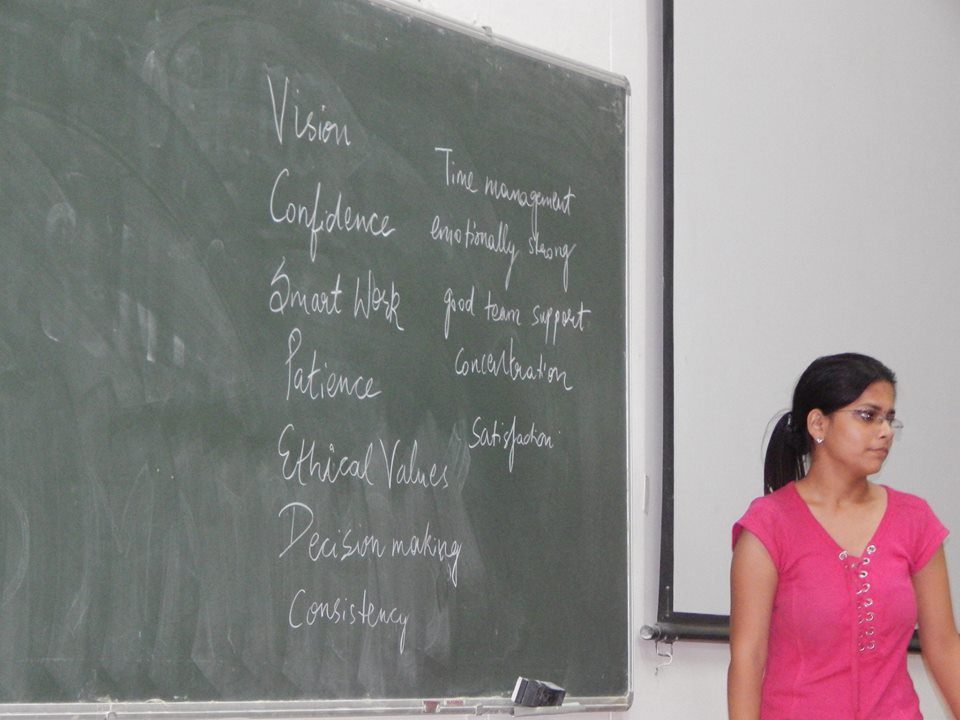 Vision
Confidence
Smart Work
Patience
Ethical Values
Decision making
Consistency
Time management
emotionally strong
good team support
Concentration
Satisfaction